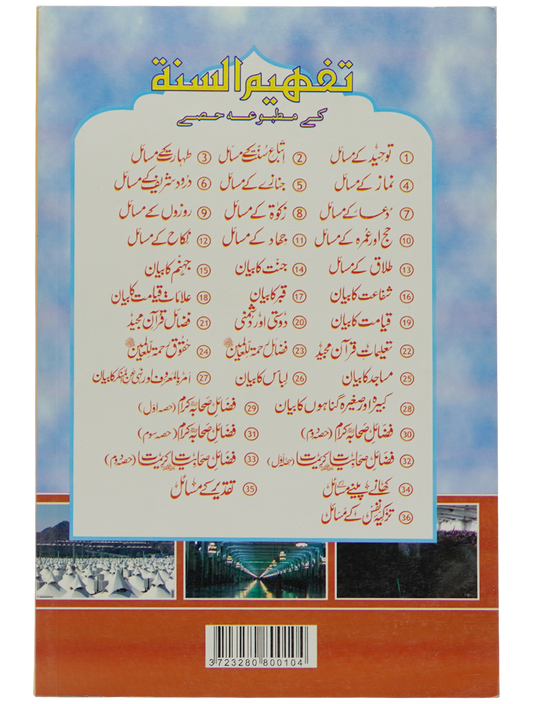 تفہیم السنة
کے مطبوعہ حصے
① توحید کے مسائل ② اتباع سنت کے مسائل ③ طہارت کے مسائل
④ نماز کے مسائل ⑤ جنازے کے مسائل ⑥ درود شریف کے مسائل
⑦ دعا کے مسائل ⑧ زکوٰۃ کے مسائل ⑨ روزوں کے مسائل
⑩ حج اور عمرہ کے مسائل ⑪ جہاد کے مسائل ⑫ نکاح کے مسائل
⑬ طلاق کے مسائل ⑭ جنت کا بیان ⑮ جہنم کا بیان
⑯ شفاعت کا بیان ⑰ قبر کا بیان ⑱ علامات قیامت کا بیان
⑲ قیامت کا بیان ⑳ دوستی اور دشمنی ㉑ فضائل قرآن مجید
㉒ تعلیمات قرآن مجید ㉓ فضائل رحمۃ للعالمین ﷺ ㉔ حقوق رحمۃ للعالمین ﷺ
㉕ مساجد کا بیان ㉖ لباس کا بیان ㉗ امر بالمعروف اور نہی عن المنکر کا بیان
㉘ کبیرہ اور صغیرہ گناہوں کا بیان ㉙ فضائل صحابہ کرام (حصہ اول)
㉚ فضائل صحابہ کرام (حصہ دوم) ㉛ فضائل صحابہ کرام (حصہ سوم)
㉜ فضائل صحابیات کریمات (حصہ اول) ㉝ فضائل صحابیات کریمات (حصہ دوم)
㉞ کھانے پینے کے مسائل ㉟ تقدیر کے مسائل
㊱ تزکیہ نفس کے مسائل
3 723280 800104